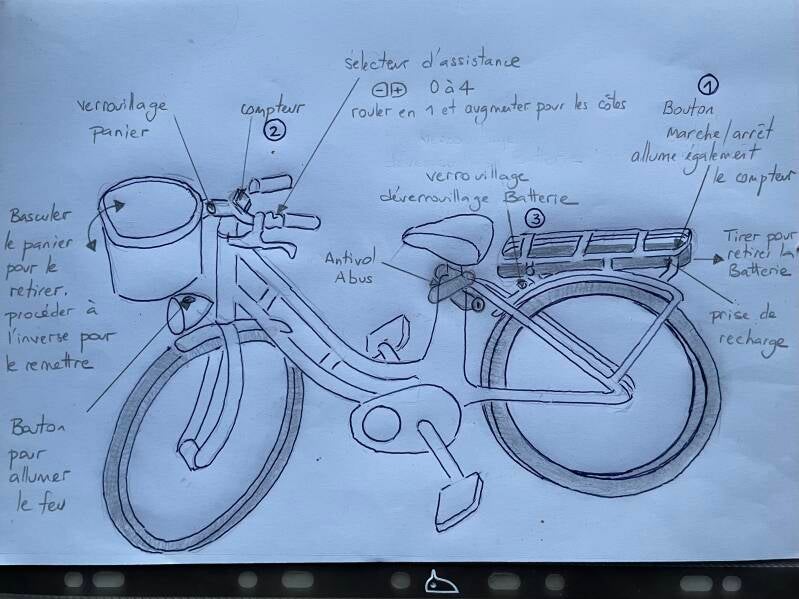 sélecteur d'assistance
⊖⊕ 0 à 4
rouler en 1 et augmenter pour les côtes
verrouillage
panier
compteur
②
①
Bouton
Marche/arrêt
allume également
le compteur
verrouillage
déverrouillage Batterie
③
Basculer
le panier
pour le
retirer.
procéder à
l'inverse pour
le remettre
Antivol
Abus
Tirer pour
retirer la
Batterie
prise de
recharge
Bouton
pour
allumer
le feu